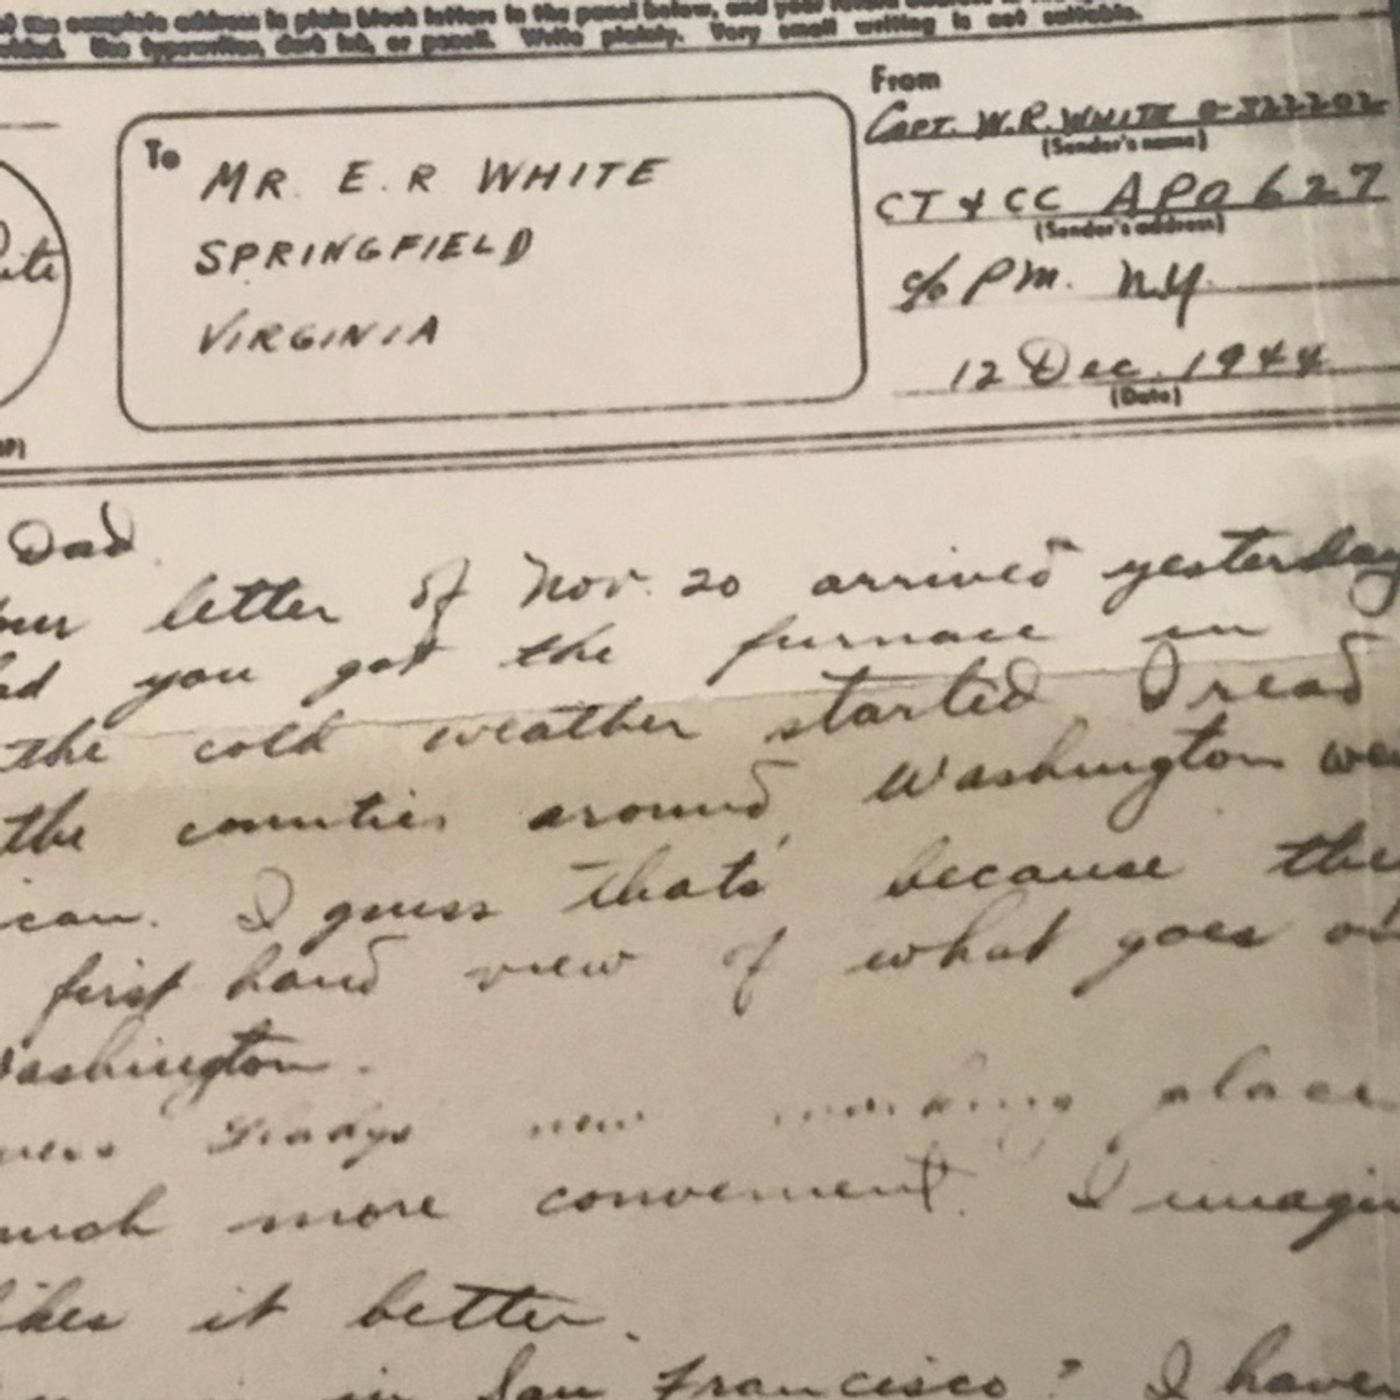 the complete address in plain block letters in the panel below, and your return address
Use typewriter, dark ink, or pencil. Write plainly. Very small writing is not suitable.
From
CAPT. W.R. WHITE
(Sender's name)
To
MR. E.R WHITE
SPRINGFIELD
VIRGINIA
CT & CC APO 627
(Sender's address)
c/o P.M. N.Y.
12 Dec. 1944
(Date)
Dad
letter of Nov. 20 arrived yesterday
you got the furnace in
the cold weather started I read
the counties around Washington
ican. I guess that's because the
first hand view of what goes on
Washington.
Gladys new working place
much more convenient. I imagin
likes it better.
in San Francisco? I have